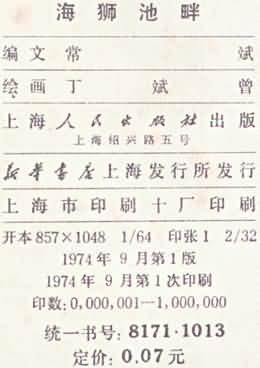 海狮池畔
编文 常 斌
绘画 丁 斌 曾
上海人民出版社出版
上海绍兴路五号
新华书店上海发行所发行
上海市印刷十厂印刷
开本 857×1048 1/64 印张 1 2/32
1974年9月第1版
1974年9月第1次印刷
印数: 0,000,001—1,000,000
统一书号: 8171·1013
定价: 0.07元